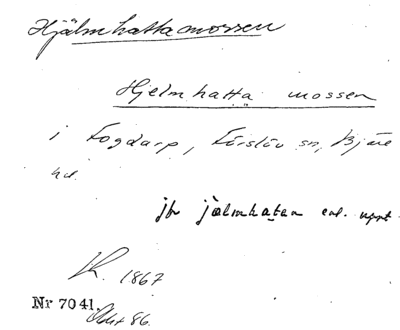 Hjälmhattamossen
Hjelmhatta mossen
i Fogdarp, Förslöv sn, Bjäre
hd.
jfr jälmhatan enl. uppt.
1867
Nr 7041.
86.